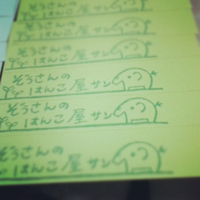 ぞうさんの
はんこ屋サン
ぞうさんの
はんこ屋サン
ぞうさんの
はんこ屋サン
ぞうさんの
はんこ屋サン
ぞうさんの
はんこ屋サン